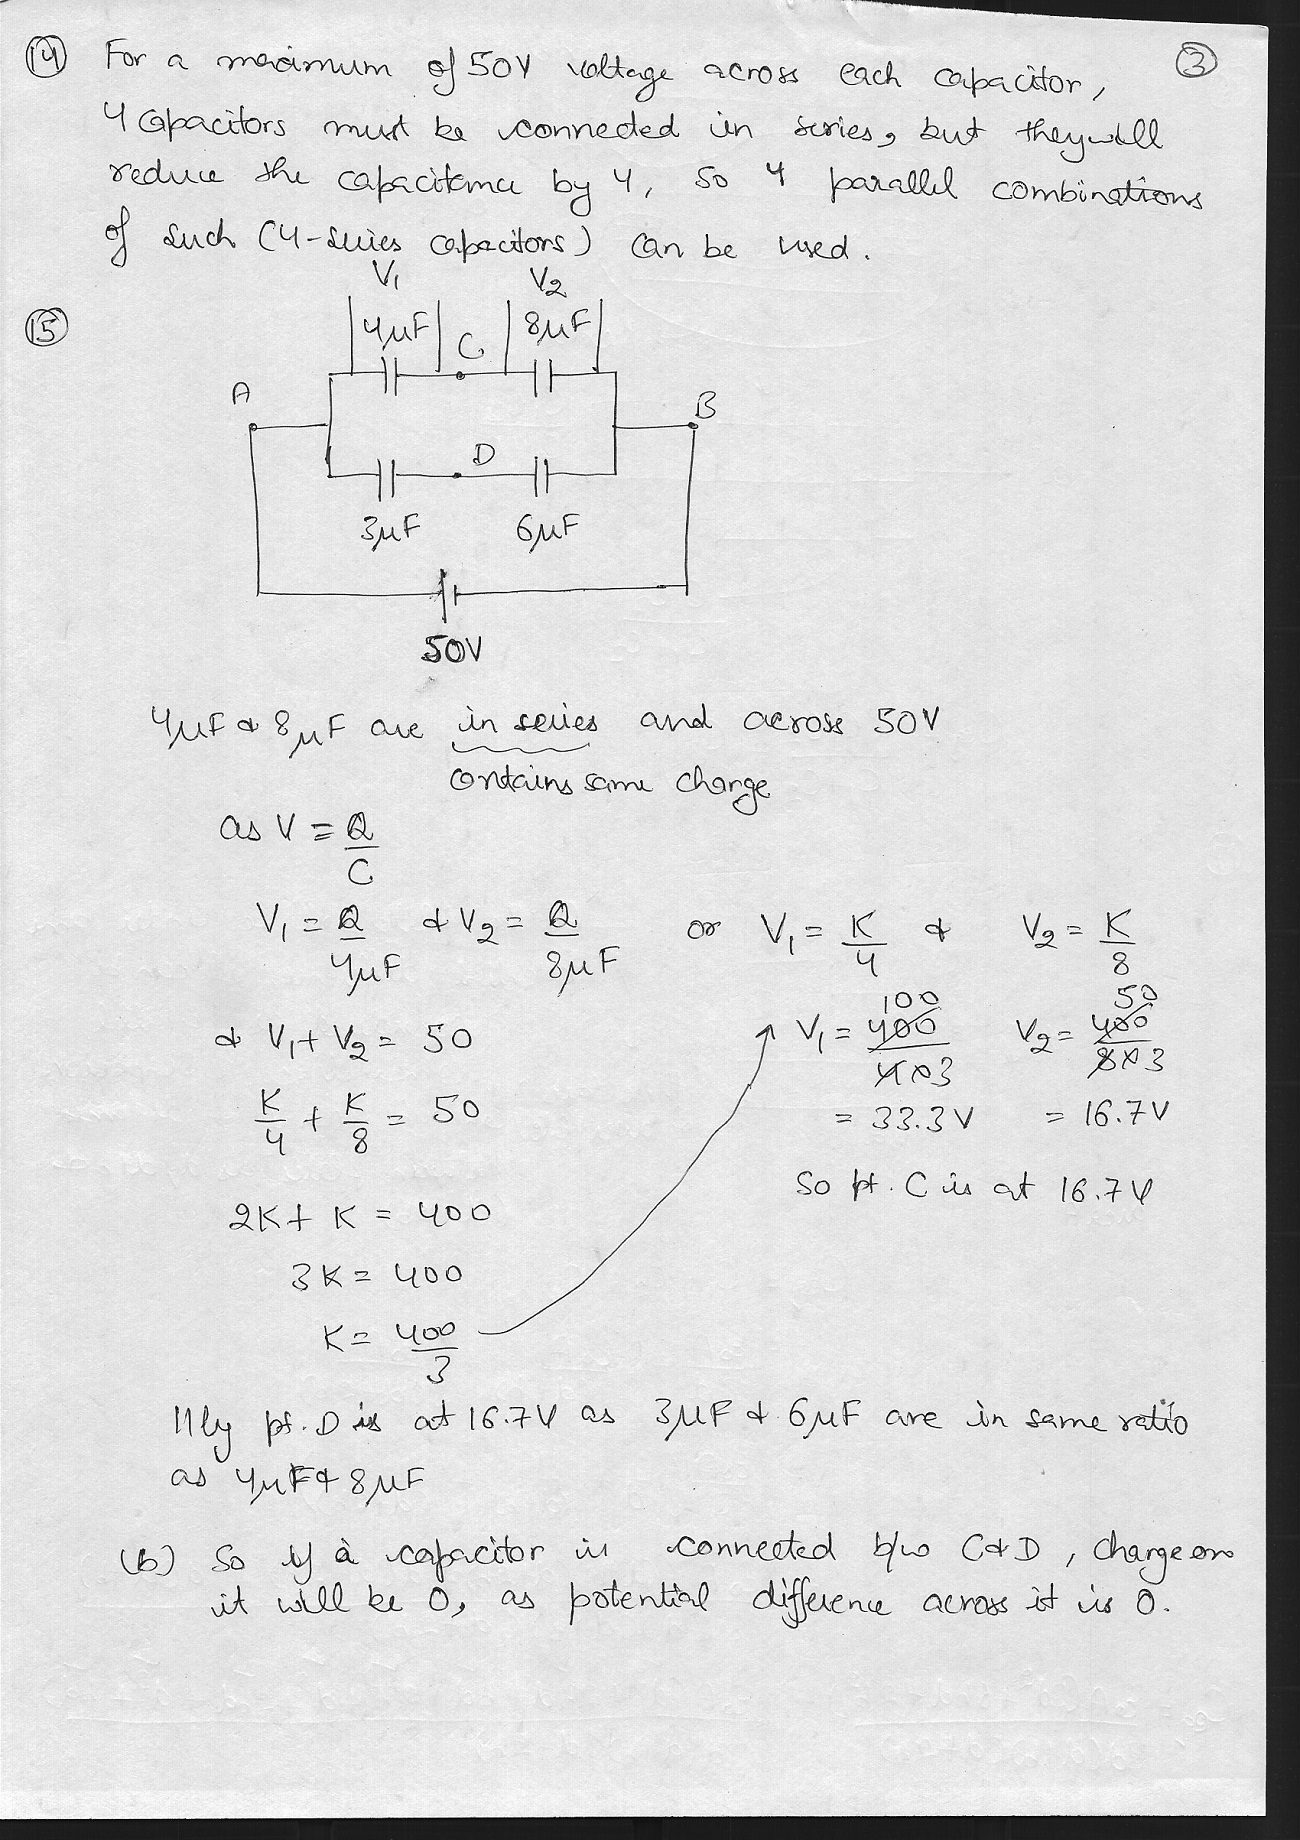 ③
⑭ For a maximum of 50V voltage across each capacitor,
4 capacitors must be connected in series, but they will
reduce the capacitance by 4, so 4 parallel combinations
of such (4-series capacitors) can be used.
⑮
V₁ V₂
4μF C 8μF
A B
D
3μF 6μF
50V
4μF & 8μF are in series and across 50V
contains same charge
as V = Q/C
V₁ = Q/4μF & V₂ = Q/8μF or V₁ = K/4 & V₂ = K/8
100 50
& V₁ + V₂ = 50 V₁ = 400/4×3 V₂ = 400/8×3
K/4 + K/8 = 50 = 33.3V = 16.7V
So pt. C is at 16.7V
2K + K = 400
3K = 400
K = 400/3
llly pt. D is at 16.7V as 3μF & 6μF are in same ratio
as 4μF & 8μF
(b) So if a capacitor is connected b/w C & D, charge on
it will be 0, as potential difference across it is 0.